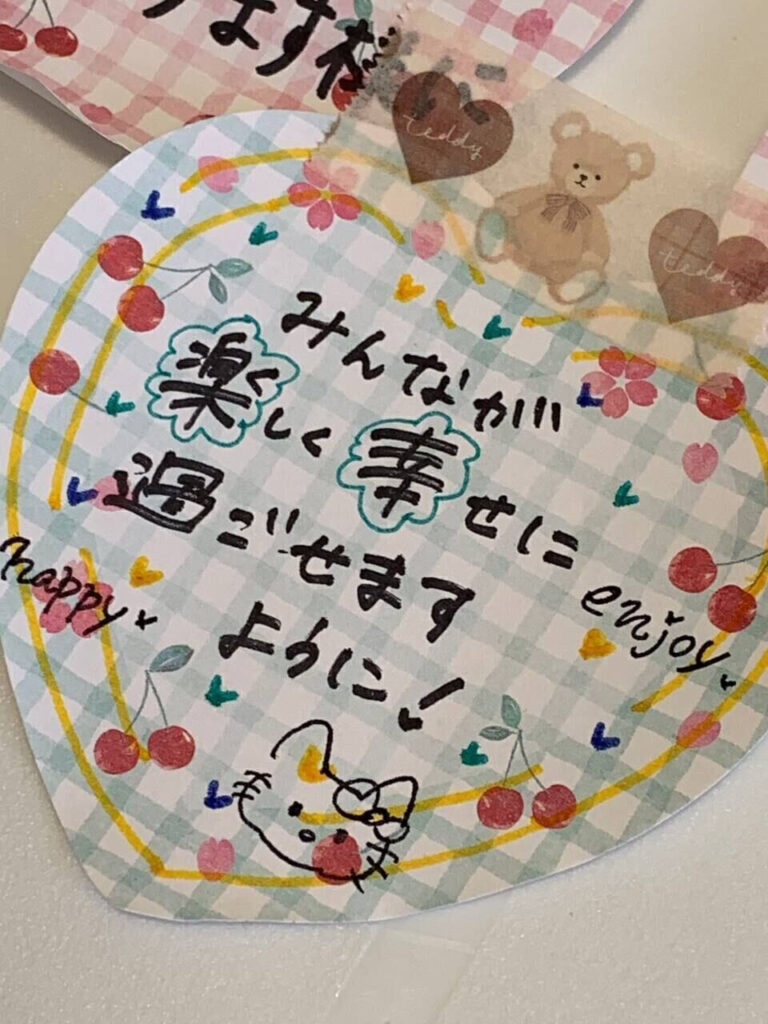 ます様に
teddy
teddy
みんなが
楽しく幸せに
過ごせます
ように!
happy
enjoy